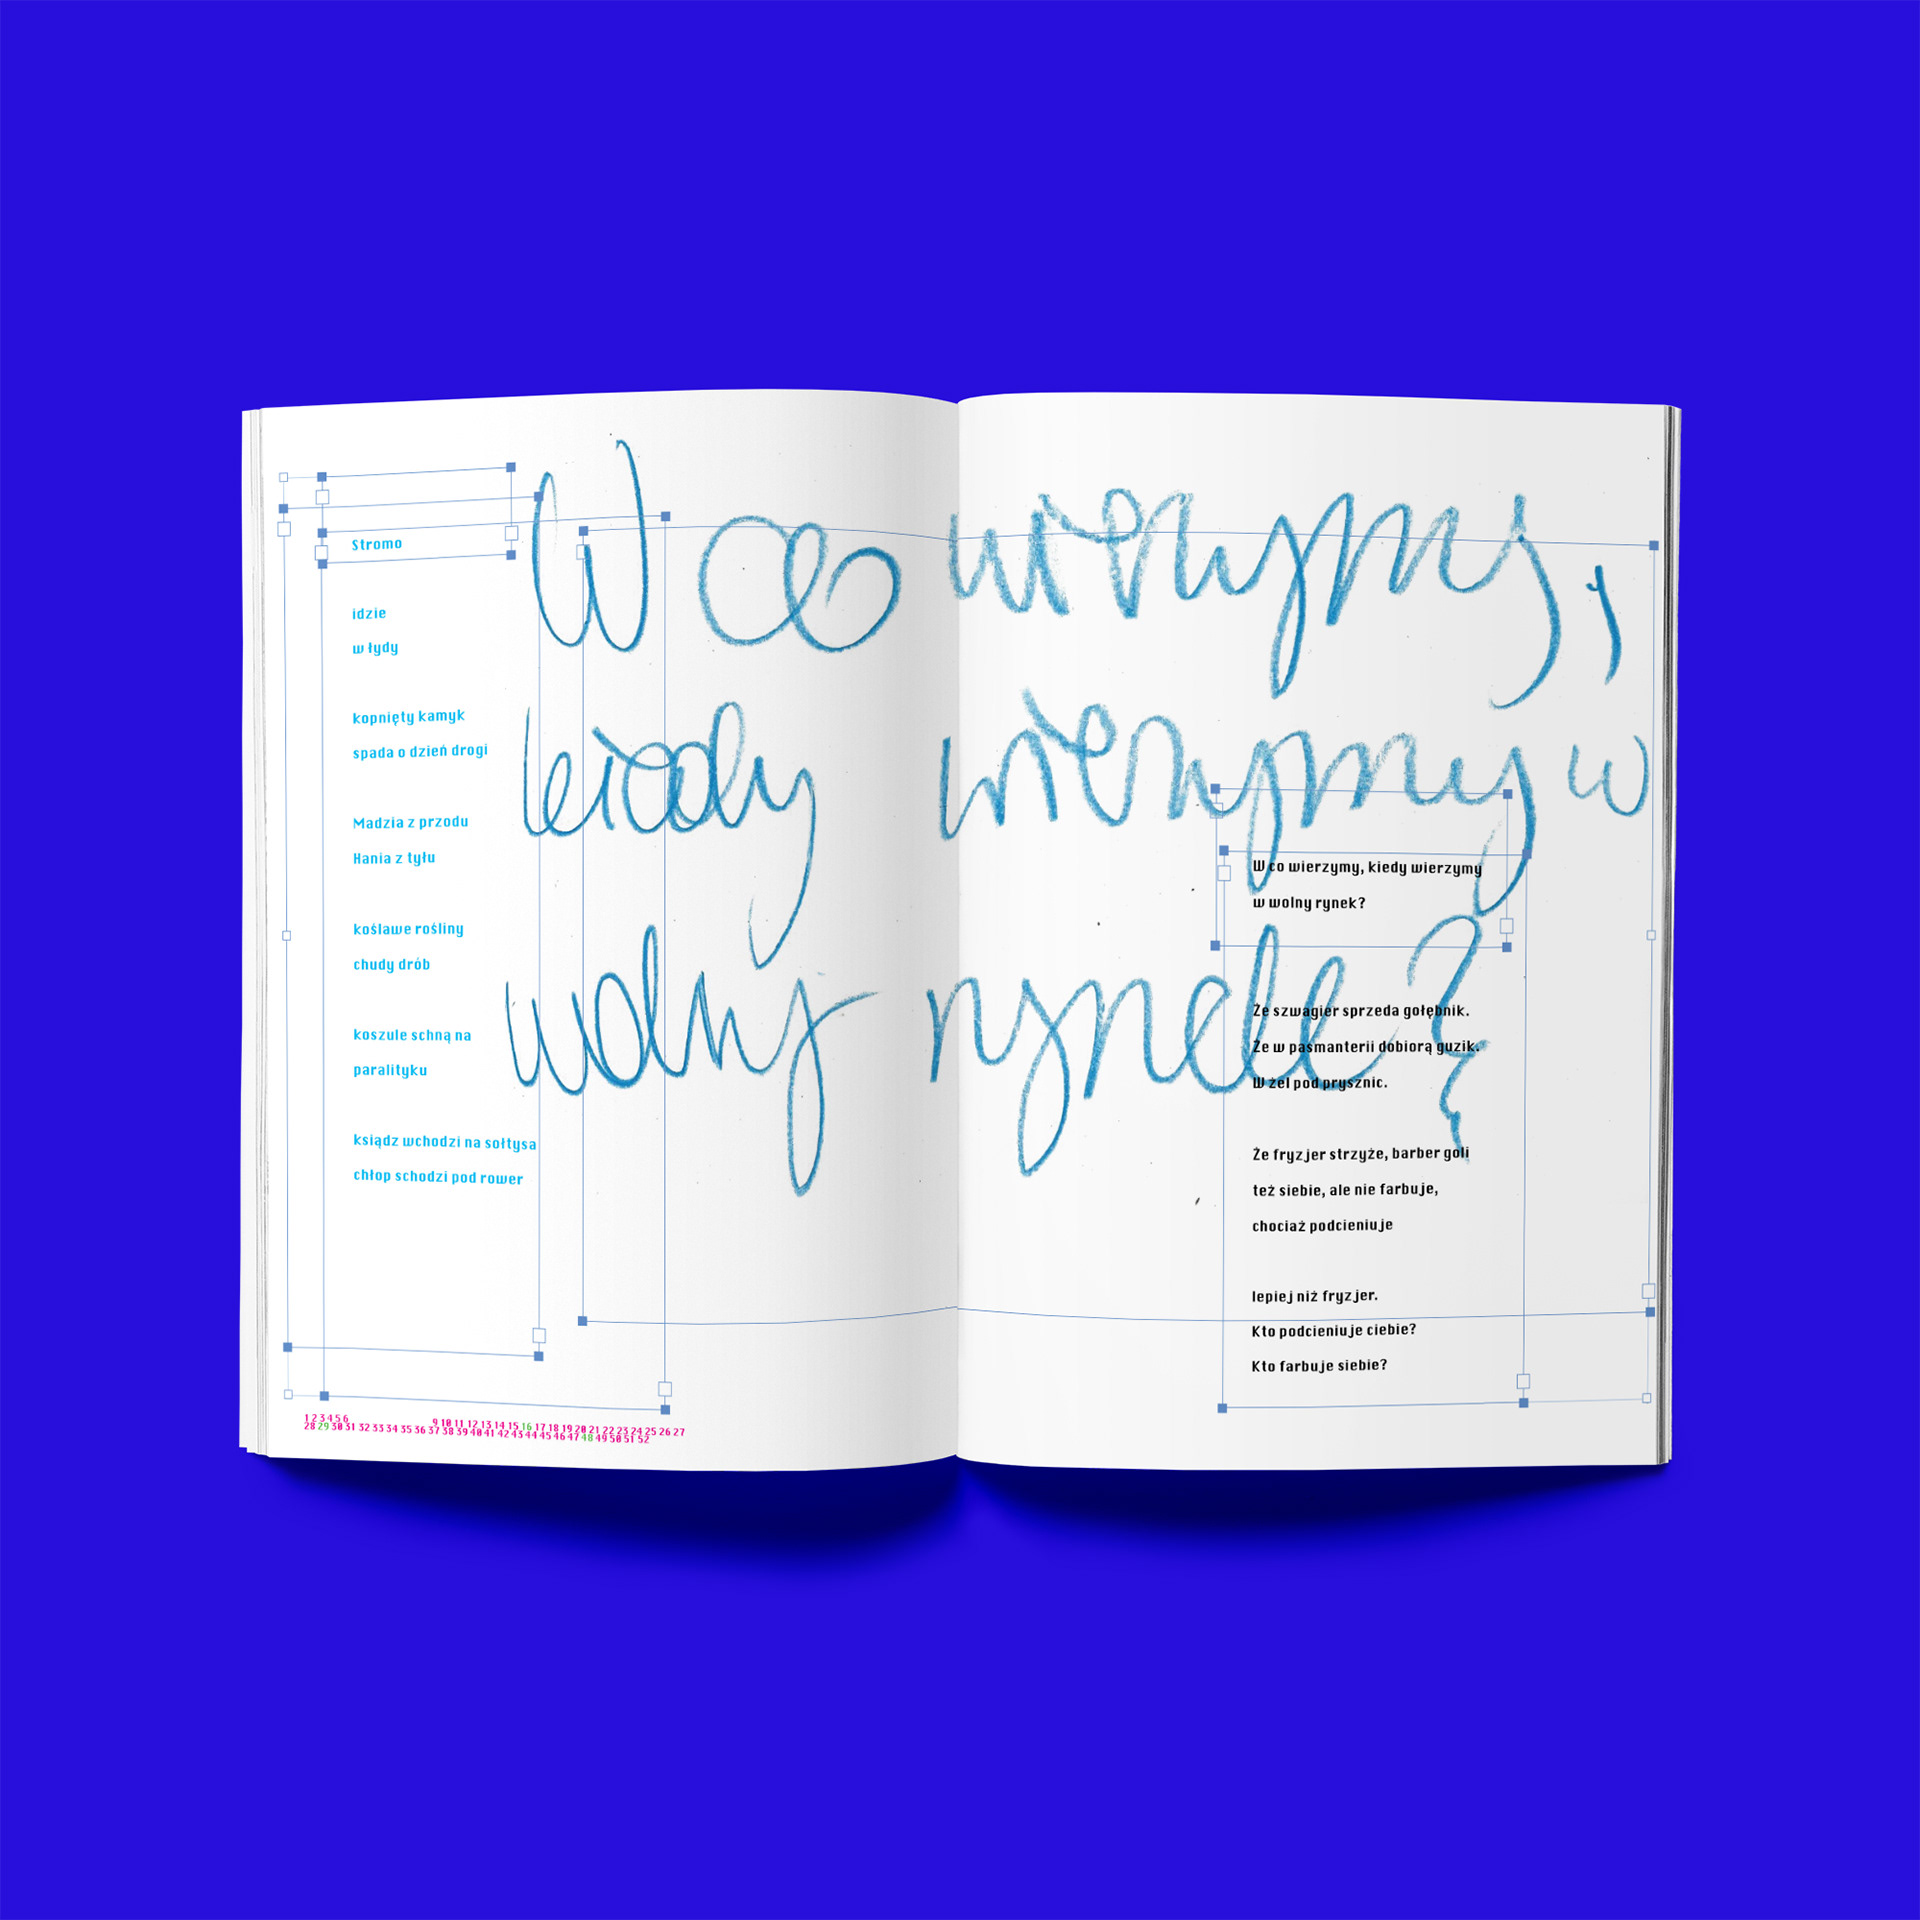 Stromo
idzie
w łydy
kopnięty kamyk
spada o dzień drogi
Madzia z przodu
Hania z tyłu
koślawe rośliny
chudy drób
koszule schną na
paralityku
ksiądz wchodzi na sołtysa
chłop schodzi pod rower
1 2 3 4 5 6 9 10 11 12 13 14 15 16 17 18 19 20 21 22 23 24 25 26 27
28 29 30 31 32 33 34 35 36 37 38 39 40 41 42 43 44 45 46 47 48 49 50 51 52
W co wierzymy,
kiedy wierzymy w
wolny rynek?
W co wierzymy, kiedy wierzymy
w wolny rynek?
Że szwagier sprzeda gołębnik.
Że w pasmanterii dobiorą guzik.
W żel pod prysznic.
Że fryzjer strzyże, barber goli
też siebie, ale nie farbuje,
chociaż podcieniuje
lepiej niż fryzjer.
Kto podcieniuje ciebie?
Kto farbuje siebie?